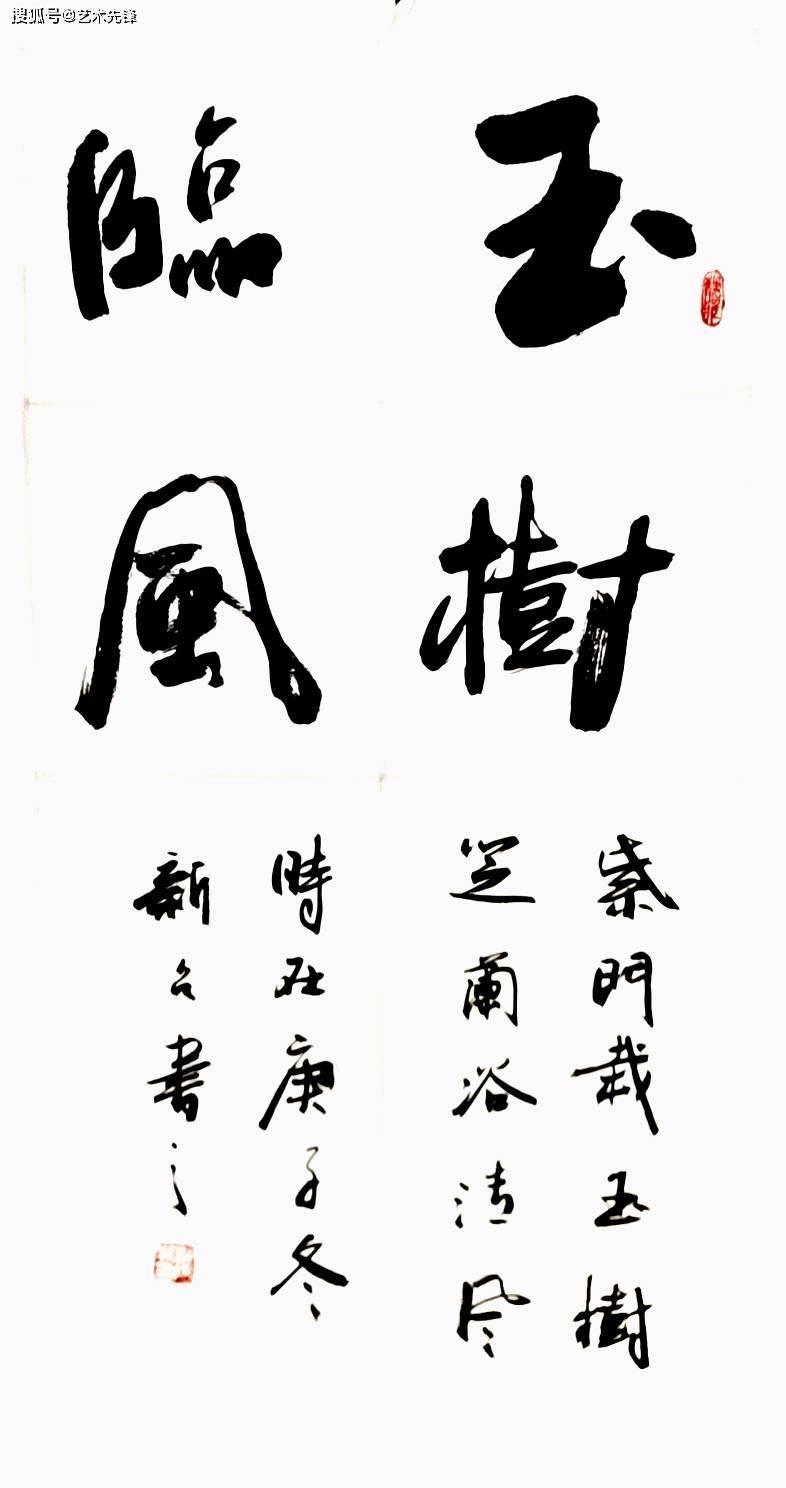 搜狐号@艺术先锋
玉樹
臨風
紫門栽玉樹
芝蘭浴清风
時在庚子冬
新台書之